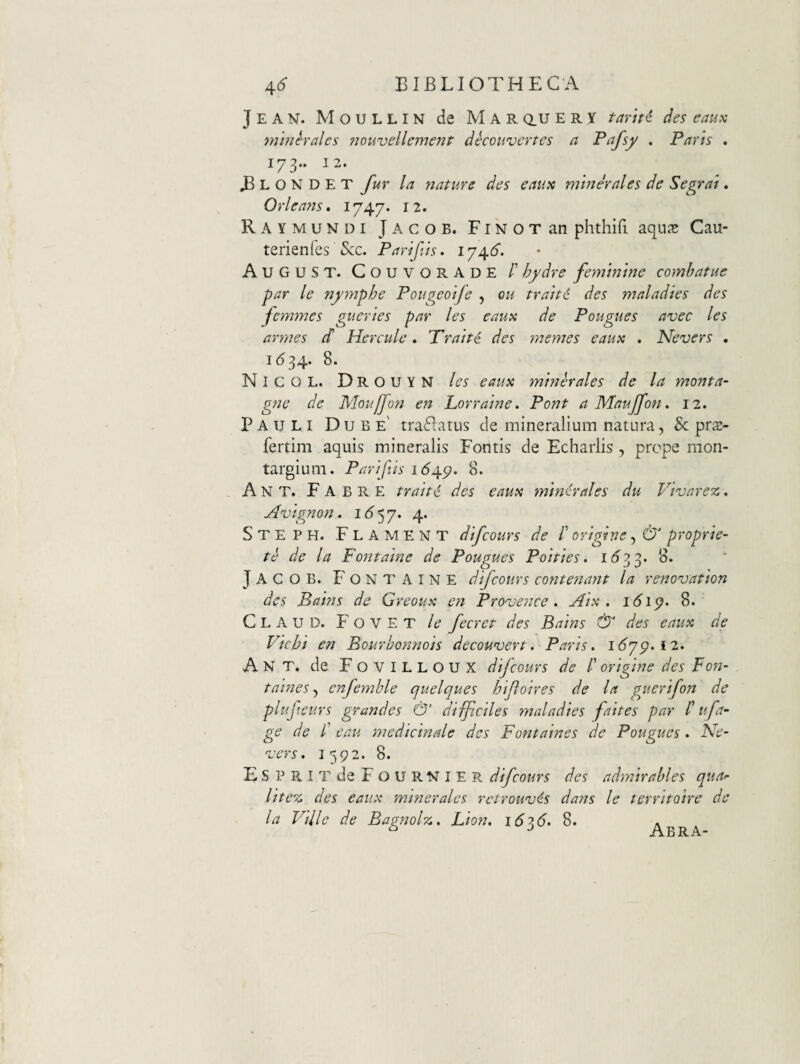 46 BIBLIOTHECA
JEAN. MOULLIN de MARQUERY tarité des eaux
minèrales nouvellement dècouvertes a Pafsy . Paris .
173.. 12.
BLONDET ſur la nature des eaux minérales de Segrai.
Orleans. 1747. 12.
RAYMUNDI JACOB. FINOT an phthiſi aquæ Cau-
terienſes &c. Pariſiis. 1746.
AUGUST. COUVORADE l'hydre feminine combatue
par le nymphe Pougeoiſe , ou traité des maladies des
femmes gueries par les eaux de Pougues avec les
armes d' Hercule . Traité des memes eaux . Nevers .
1634. 8.
NICOL. DROUYN les eaux minèrales de la monta-
gne de Mouſſon en Lorraine. Pont a Mauſſon. 12.
PAULI DUBE' tractatus de mineralium natura, & præ-
ſertim aquis mineralis Fontis de Echarlis , prope mon-
targium. Pariſiis 1649. 8.
ANT. FABRE traité des eaux minérales du Vivarez.
Avignon. 1657. 4.
STEPH. FLAMENT diſcours de l'origine, & proprie-
té de la Fontaine de Pougues Poities. 1633. 8.
JACOB. FONTAINE diſcours contenant la renovation
des Bains de Greoux en Provence . Aix . 1619. 8.
CLAUD. FOVET le ſecret des Bains & des eaux de
Vichi en Bourbonnois decouvert. Paris. 1679. 12.
ANT. de FOVILLOUX diſcours de l'origine des Fon-
taines, enſemble quelques hiſtoires de la gueriſon de
pluſieurs grandes & difficiles maladies faites par l'uſa-
ge de l' eau medicinale des Fontaines de Pougues . Ne-
vers. 1592. 8.
ESPRIT de FOURNIER diſcours des admirables qua-
litez des eaux minerales retrouvés dans le territoire de
la Ville de Bagnolz. Lion. 1636. 8.
ABRA-